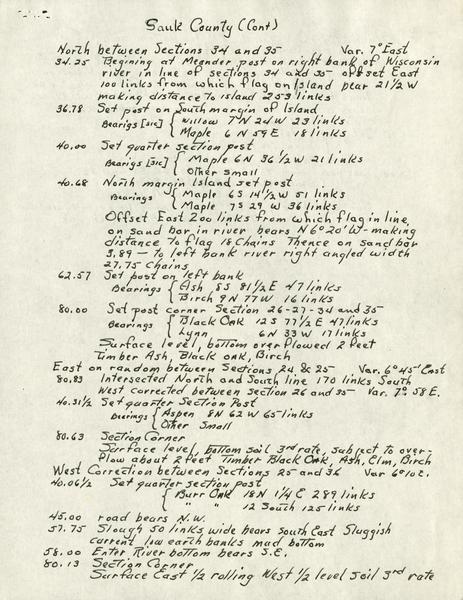 Sauk County (Cont)
North between Sections 34 and 35 Var. 7° East
34.25 Begining at Meander post on right bank of Wisconsin
river in line of sections 34 and 35 offset East
100 links from which flag on Island bear 21 1/2 W
making distance to island 253 links
36.78 Set post on South margin of Island
Bearigs [sic] { Willow 7 N 24 W 23 links
Maple 6 N 59 E 18 links
40.00 Set quarter section post
Bearigs [sic] { Maple 6 N 36 1/2 W 21 links
Other small
40.68 North margin Island set post
Bearings { Maple 6 S 14 1/2 W 51 links
Maple 7 S 29 W 36 links
Offset East 200 links from which flag in line,
on sand bar in river bears N 6° 20' W - making
distance to flag 18 Chains Thence on sand bar
3.89 — to left bank river right angled width
27.75 Chains
62.57 Set post on left bank
Bearings { Ash 8 S 81 1/2 E 47 links
Birch 9 N 77 W 16 links
80.00 Set post corner Section 26-27-34 and 35
Bearings { Black Oak 12 S 77 1/2 E 47 links
Lynn 6 N 33 W 17 links
Surface level, bottom overflowed 2 feet
Timber Ash, Black oak, Birch
East on random between Sections 24 & 25 Var. 6° 45' East
80.83 Intersected North and South line 170 links South
West corrected between Section 26 and 35 Var. 7° 58 E.
40.31 1/2 Set quarter Section Post
Bearings { Aspen 8 N 62 W 65 links
Other Small
80.63 Section Corner
Surface level, bottom soil 3rd rate, subject to over-
flow about 2 feet Timber Black Oak, Ash, Elm, Birch
West Correction between Sections 25 and 36 Var 6°
40.06 1/2 Set quarter section post
{ Burr Oak 18 N 1/4 E 289 links
" " 12 South 125 links
45.00 road bears N.W.
57.75 Slough 50 links wide bears South East Sluggish
current low earth banks mud bottom
58.00 Enter River bottom bears S.E.
80.13 Section Corner
Surface East 1/2 rolling West 1/2 level soil 3rd rate